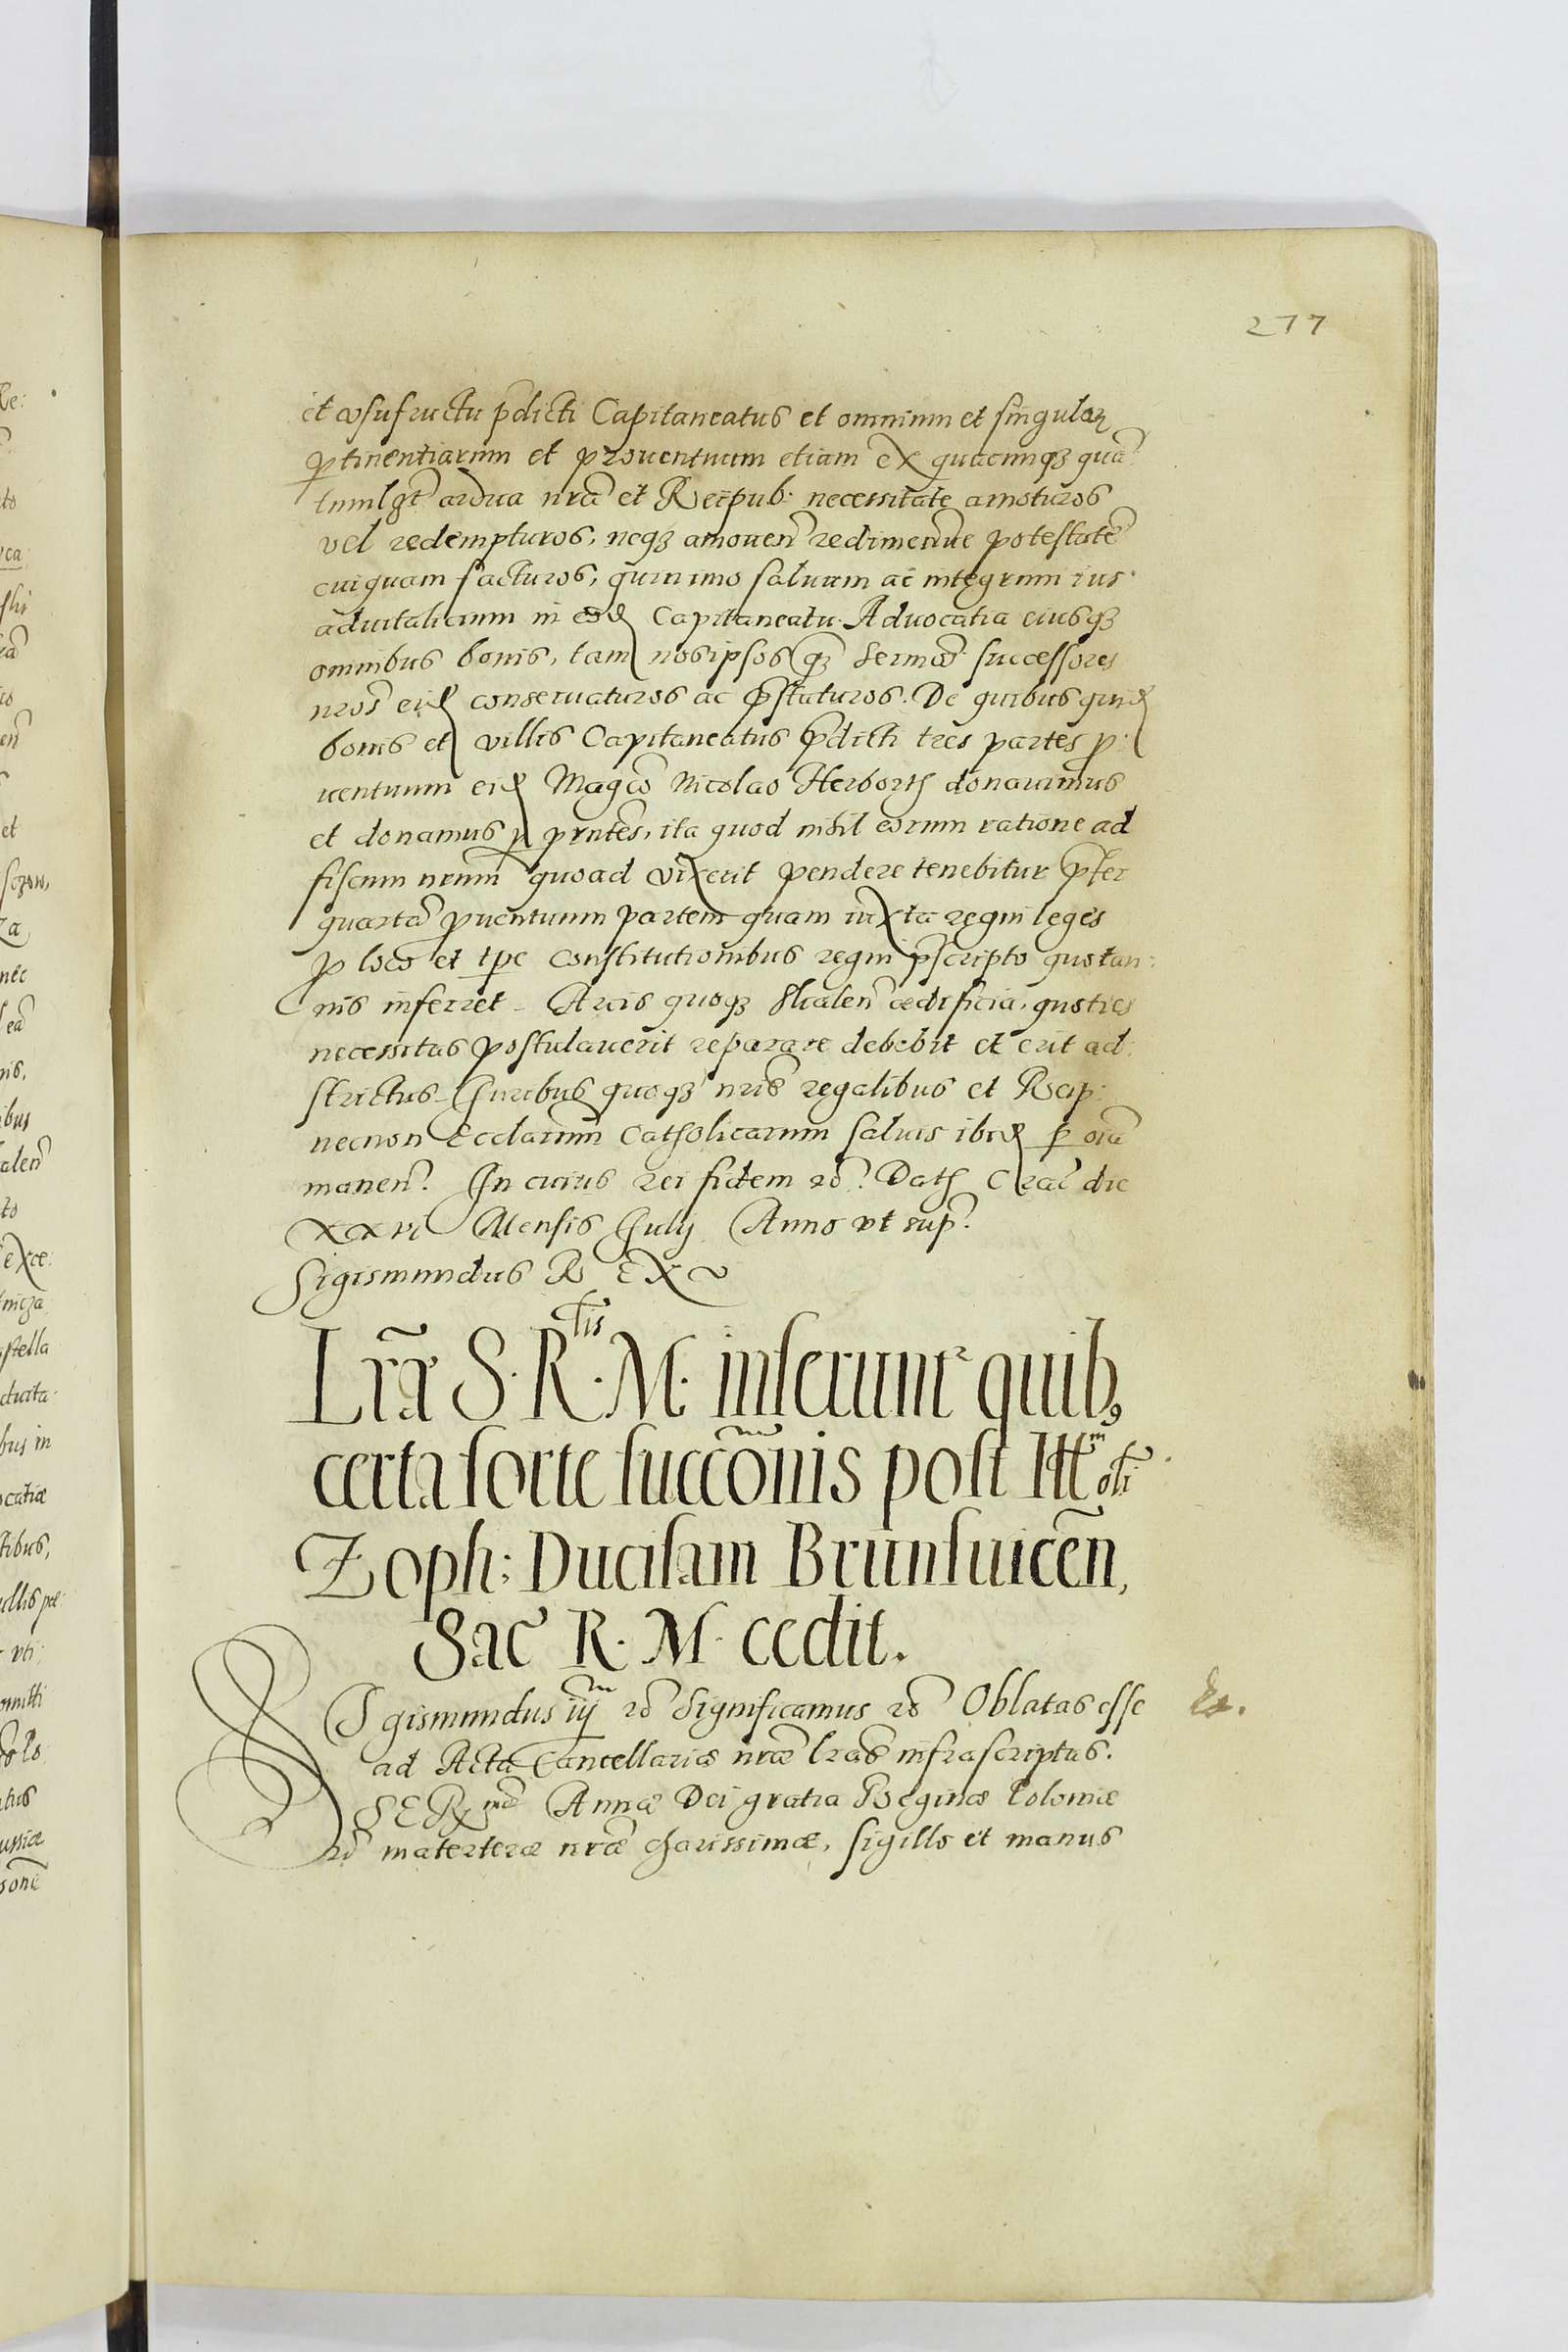 277
et vsufructu p̃dicti Capitaneatus et omnium et singulaꝝ
ꝑtinentiarum et prouentuum etiam ex quacunqꝫ quã
tumlꝫt ardua nrã et Reipub: necessitate amoturos
vel redempturos, neqꝫ amouen̄ redimenđue potestatẽ
cuiquam facturos, quinimo saluum ac integrum ius
aduitalicium in eođ Capitaneatu Aduocatia eiusqꝫ
omnibus bonis, tam nosipsos qꝫ sermõs successores
nros̃ eiđ conseruaturos ac p̃staturos. De quibus quiđ
bonis et villis Capitaneatus p̃dicti tres partes ꝓ:
uentuum eiđ Magco̅ Nicolao Herborth donauimus
et donamus ꝑ pn̄tes, ita quod nihil eorum ratione ad
fiscum nrum̃ quoad vixerit pendere tenebitur p̃ter
quartã ꝓuentuum partem quam iuxta regni leges
ꝓ loco et tp̃e constitutionibus regni p̃scripto quotan:
nis inferret. Arcis quoqꝫ Halen̄ ædificia, quoties
necessitas postulauerit reparare debebit et erit ad:
strictus. Iuribus quoqꝫ nris̃ regalibus et Reip:
necnon Ecclarum̃ Catholicarum saluis ibiđ ꝑ oiã
manen̄. In cuius rei fidem ꝛc̃. Dath Craĉ die
xxvi Mensis Iulij Anno vt sup̃.
Sigismundus REX
Lr̃æ S. R. M.tis inserunt᷑ quibꝫ
certa sorte succc̃onis post Illm oli
Zoph: Ducisam Brunsuicen̄,
Sac̃ R. M. cedit.
SIgismundus iijm ꝛc̃ Significamus ꝛc̃ Oblatas esse
ad Acta Cancellariæ nræ̃ lrãs infrascriptas.
SERmæ Annæ Dei gratia Reginæ Poloniæ
ꝛc̃ materteræ nræ̃ charissimæ, sigillo et manus